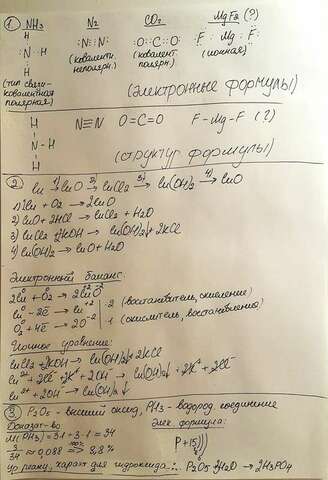 1) NH3 N2 CO2 MgF2 (?)
H
:N:H
H
(тип связи - ковалентная полярная)
:N⋮⋮N:
(ковалентн. неполярн.)
O::C::O
(ковалент. полярн.)
F : Mg : F:
(ионная)
(Электронные формулы)
H
|
N-H
|
H
N≡N O=C=O F-Mg-F (?)
(структур формулы)
2) Cu →1) CuO →2) CuCl2 →3) Cu(OH)2 →4) CuO
1) 2Cu + O2 → 2CuO
2) CuO + 2HCl → CuCl2 + H2O
3) CuCl2 + 2KOH → Cu(OH)2↓ + 2KCl
4) Cu(OH)2 → CuO + H2O
Электронный баланс:
2Cu⁰ + O2⁰ → 2Cu⁺²O⁻²
Cu⁰ - 2ē → Cu⁺² | 2 (восстановитель, окисление)
O2⁰ + 4ē → 2O⁻² | 1 (окислитель, восстановление)
Ионное уравнение:
CuCl2 + 2KOH → Cu(OH)2↓ + 2KCl
Cu²⁺ + 2Cl⁻ + 2K⁺ + 2OH⁻ → Cu(OH)2↓ + 2K⁺ + 2Cl⁻
Cu²⁺ + 2OH⁻ → Cu(OH)2↓
3) P2O5 - высший оксид, PH3 - водород. соединение
Доказат-во
M(PH3) = 31 + 3·1 = 34
3/34 ≈ 0,088 => 8,8%
100%
Элек формула:
P +15)))
характ для гидроксида: P2O5 + 3H2O → 2H3PO4